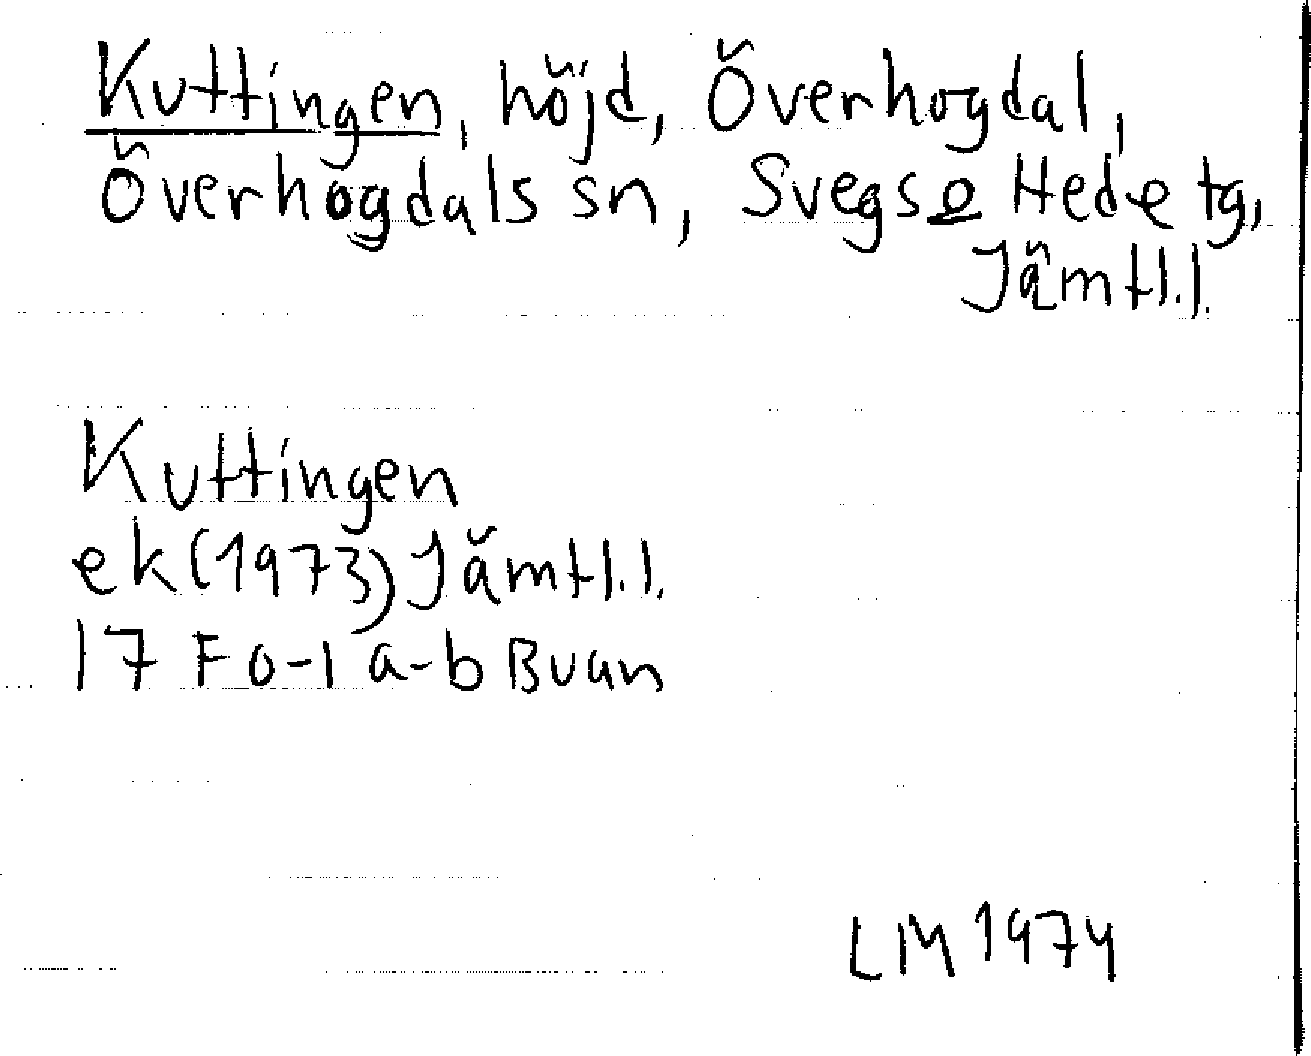 Kuttingen, höjd, Överhogdal,
Överhogdals sn, Svegs o Hede tg,
Jämtl.l.
Kuttingen
ek(1973) Jämtl.l.
17 F 0-1 a-b Buan
LM 1974